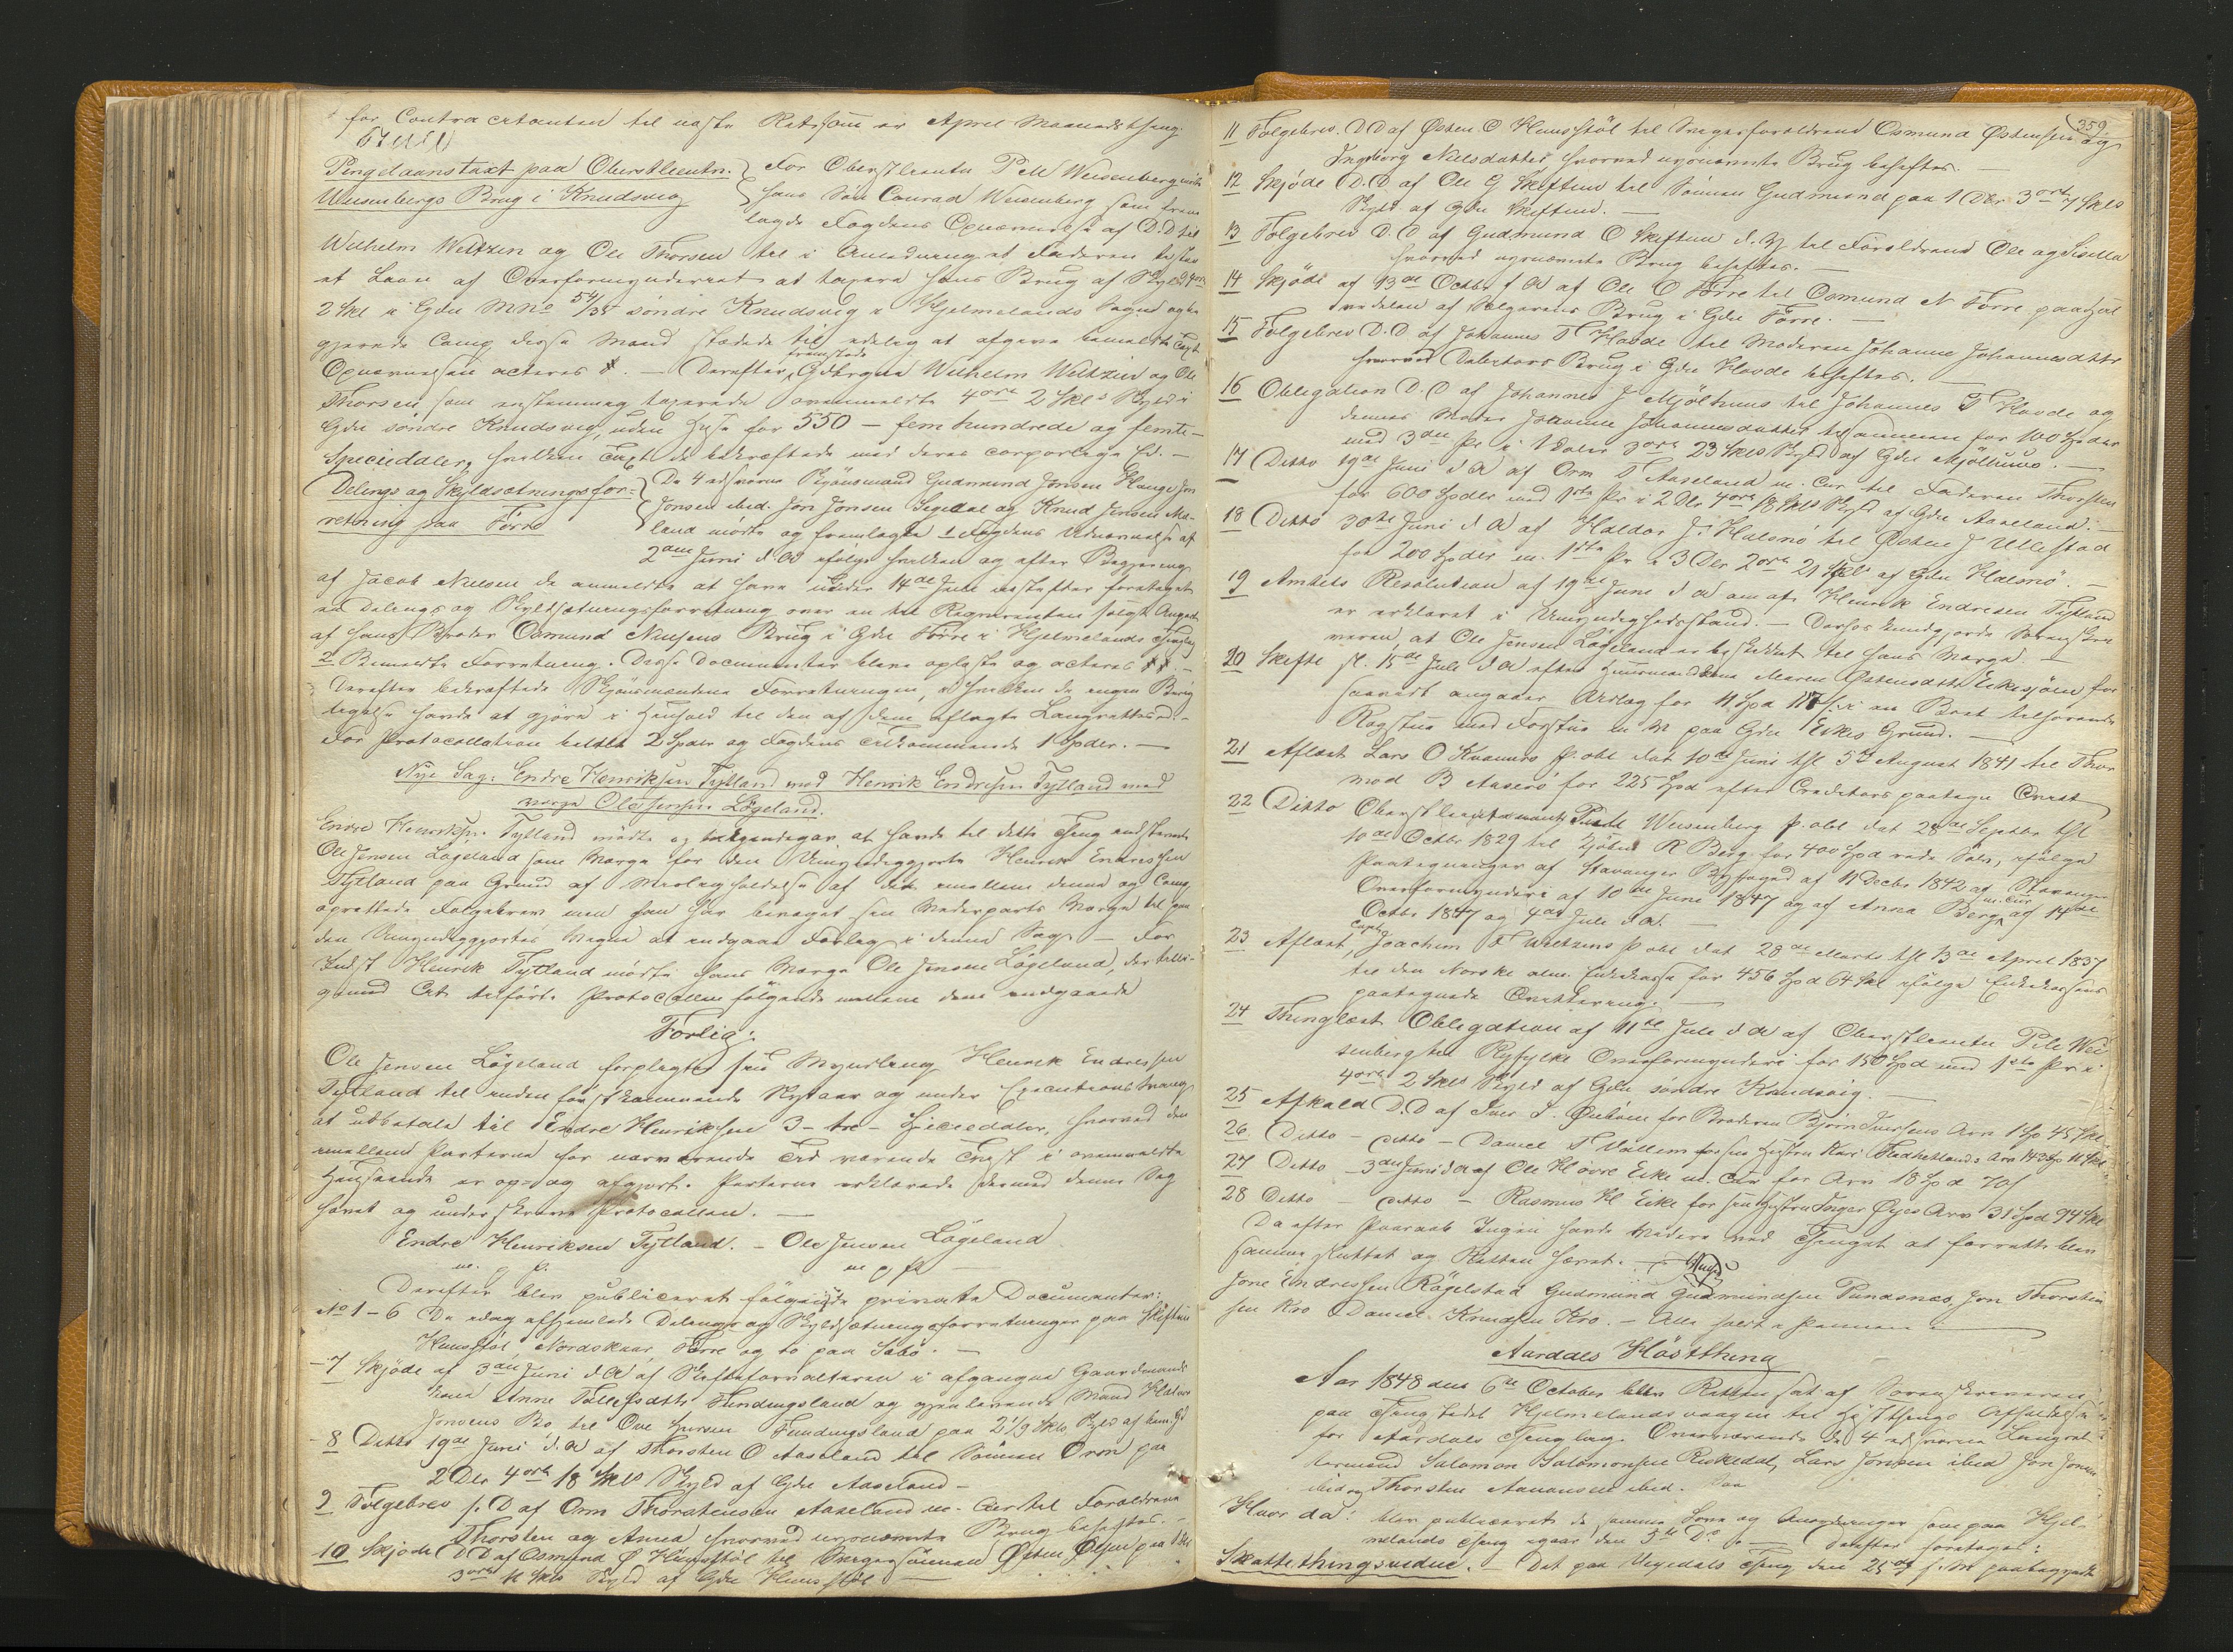 for Contracitanten til næste Retssam er April Maaneds thing.
Pengelaanstaxt paa Oberstlieutn. For Oberstlieutn Pell Weisenberg mødte
Weisenbergs Brug i Knudsvig hans Søn Conrad Weisenberg som frem
lagde Fogdens Opnævnelse af D.D. til
Wilhelm Weltzin og Ole Thorsen til i Anledning at Faderen
et Laan af Overformynderiet at taxere hans Brug af Skyld 4 ort
2 Skl i Gdn MNo 54/135 søndre Knudsvig i Hjelmelands Sogn og be
gjerede Comp disse Mænd stædede til edelig at afgive bemeldte Taxt
Opnævnelsen acteres. — Derefter fremstode Gdbrgne Wilhelm Weltzin og Ole
Thorsen som enstemmig taxerede ovenmeldte 4 ort 2 Skls Skyld i
Gdn søndre Knudsvig, uden Huse for 550 — fem hundrede og femti —
Speciedaler, hvilken Taxt de bekræftede med deres corporlige Ed. —
Delings og Skyldsætningsfor= De 4 edsvorne Skjønsmænd Gudmund Jonsen Hauge Jon
retning paa Førre Jonsen ibid. Jon Jonsen Segedal og Knud Jensen Me-
land mødte og fremlagde 1 Fogdens Udnævnelse af
2den Juni d.A. ifølge hvilken og efter Begjering
af Jacob Nielsen de anmeldte at have under 14de Juli foretaget
en Delings og Skyldsætningsforretning over en til Reqvirenten solgt
af hans Broder Osmund Nielsens Brug i Gdn Førre i Hjelmelands Thinglag
2 Bemeldte Forretning. Disse Documenter bleve oplæste og acteres. —
Derefter bekræftede Skjønsmændene Forretningen, i hvilken de ingen Berig
tigelse havde at gjøre i Henhold til den af dem aflagte Laugrettesed. —
For Protocollation betalte 2 Spdlr og Fogdens tilkommende 1 Spdlr. —
Nye Sag: Endre Henriksen Tytland mod Henrik Endresen Tytland med
værge Ole Jensen Løgeland.
Endre Henriksen Tytland mødte og tilkjendegav at have til dette Thing indstevnt
Ole Jensen Løgeland som Værge for den Umyndiggjorte Henrik Endresen
Tytland paa Grund af Misligholdelse af det imellem denne og Comp
oprettede Følgebrev men han har bevæget sin Modparts Værge til paa
den Umyndiggjortes Vegne at indgaae Forlig i denne Sag — For
Indst Henrik Tytland mødte hans Værge Ole Jensen Løgeland, der tilli-
gemed Cit. tilførte Protocollen følgende imellem dem indgaaede
Forlig:
Ole Jensen Løgeland forpligter sin Myndling Henrik Endresen
Tytland til inden førstkommende Nytaar og under Executions Tvang
at udbetale til Endre Henriksen 3 - tre - Speciedaler, hvorved den
imellem Parterne for nærværende Tid værende Tvist i ovenmeldte
Henseende er op- og afgjort. Parterne erklærede dermed denne Sag
hævet og underskreve Protocollen. —
Endre Henriksen Tytland. — Ole Jensen Løgeland
m. p. P. m p P —
Derefter blev publiceret følgende private Documenter:
No 1-6 De idag afhjemlede Delings og Skyldsætningsforretninger paa Skiftun
Huusstøl, Nordskaar, Førre og to paa Sæbø. —
— 7 Skjøde af 3die Juni d A af Skifteforvalteren i afgangne Gaardmands
kone Anne Tollefsdatter Fundingsland og gjenlevende Mand Halvor
Jensens Bo, til Ove Iversen Fundingsland paa 2 1/3 Skls Skyld af bem. Gd
— 8 Ditto 19de Juni d. A af Thorsten O Aaseland til Sønnen Orm paa
2 Dlr 4 ort 18 Skls Skyld af Gdn Aaseland —
9 Følgebrev s. D af Orm Thorstensen Aaseland m. Cur. til Forældrene
Thorsten og Anna hvorved ugjenævnte Brug beheftes. —
10 Skjøde D.D af Osmund Ø Huusstøl til Svigersønnen Østen Olsen paa 1 Dlr
3 ort 11 Skls Skyld af Gdn Huusstøl —
359
11 Følgebrev. D D af Østen O Huusstøl til Svigerforældrene Osmund Østensen og
Ingeborg Nilsdatter, hvorved ugjenævnte Brug beheftes. —
12 Skjøde D.D. af Ole G Skiftun til Sønnen Gudmund paa 1 Dlr 3 ort 7 Skls
Skyld af Gdn Skiftun. —
13 Følgebrev D. D af Gudmund O Skiftun d. y til Forældrene Ole og Sisilla
hvorved ugjenævnte Brug beheftes. —
14 Skjøde af 13de Octbr f A af Ole O Førre til Osmund N Førre paa Halv
vedelen af Sælgerens Brug i Gdn Førre. —
15 Følgebrev D. D af Johannes T Havde til Moderen Johanne Johannesdatter
hvorved Debitors Brug i Gdn Havde beheftes. —
16 Obligation D. D af Johannes J Mjølhuus til Johannes T Havde og
dennes Moder Johanne Johannesdatter tilsammen for 100 Spdlr
med 3die Pr i 1 Daler 3 ort 23 Skls Skyld af Gdn Mjølhuus. —
17 Ditto 19de Juni d A af Orm T Aaseland m. Cur. til Faderen Thorsten
for 600 Spdlr med 1ste Pr i 2 Dlr 4 ort 18 Skls Skyld af Gdn Aaseland. —
18 Ditto 30te Juni d A af Haldor J. Halsnø til Østen J Ullestad
for 200 Spdlr m. 1ste Pr i 3 Dlr 2 ort 21 Skls af Gdn Halsnø. —
19 Amtets Resolution af 19de Juni d A om at Henrik Endresen Tytland
er erklæret i Umyndighedsstand. — Derhos kundgjorde Sorenskri
veren, at Ole Jensen Løgeland er beskikket til hans Værge. —
20 Skifte sl. 15de Juli d A efter Huusmandskone Maren Østensdatter Eikesjøen for
saavidt angaaer Udlæg for 11 Spd i en Boet tilhørende
Røgstue med Forstue paa Gdn Eikes Grund. —
21 Aflæst Lars O Kvamens P. obl dat 10de Juni thl 5te August 1841 til Thor
mod B Aaserø for 225 Spd efter Creditors paategn Qvitt
22 Ditto Oberstlieutenant Weisenberg P. obl dat 28de Septbr thl
10de Octbr 1829 til Kjøbmd R Berg for 400 Spd rede Sølv, ifølge
Paategninger af Stavanger Byfoged af 11 Decbr 1842 af Stavanger
Overformynderi af 10de Juni 1847 og af Anna Berg m. Cur af 14de
Octbr 1847 og 4de Juli d A. —
23 Aflæst, Capt Joachim F Weltzins P obl dat 28de Marts thl 13de April 1837
til den Norske alm. Enkekasse for 456 Spd 64 Skl ifølge Enkekassens
paategnede Qvittering. —
24 Thinglæst Obligation af 11te Juli d A af Oberstlieutn Pell Wei
senberg til Ryfylke Overformynderi for 150 Spd med 1ste Pr. i
4 ort 2 Skls Skyld af Gdn søndre Knudsvig. —
25 Afkald D.D af Iver I. for Broderen Bjørn Iversens Arv 1 Sp 45 Skl
26 Ditto — ditto — Daniel T Vallem for sin Hustru Kari Arv 143 Sp 11 Skl
27 Ditto — 3die Juni d A af Ole Eike m. Cur for Arv 18 Sp d 70 s
28 Ditto — ditto — Rasmus H Eike for sin Hustru Inger Øyes Arv 31 Spd 94 Skl
Da efter Paaraab Ingen havde videre ved Thinget at forrette blev
samme sluttet og Retten hævet.
Jone Endresen Røgelstad Gudmund Gudmundsen Pundsnæs, Jon Thorsten
sen Kro Daniel Knudsen Kro. — Alle holdte Pennen. —
Aardals Høstthing
Aar 1848 den 6te October blev Retten sat af Sorenskriveren
paa Thingstedet Hjelmelandsvaagen til Høstthings Afholdelse
for Aardals Thinglag. Overværende de 4 edsvorne Laugret
tesmænd Salomon Salomonsen Riskedal, Lars Jonsen ibid Jon Jonsen
ibid og Thorsten Aanensen ibid.
Hvor da: blev publiceret de samme Love og Anordninger som paa Hjel-
melands Thing igaar den 5te Ds. — Derefter foretages:
Skattethingsvidne. — Det paa Vigedals Thing den 25de f. M. paategnede